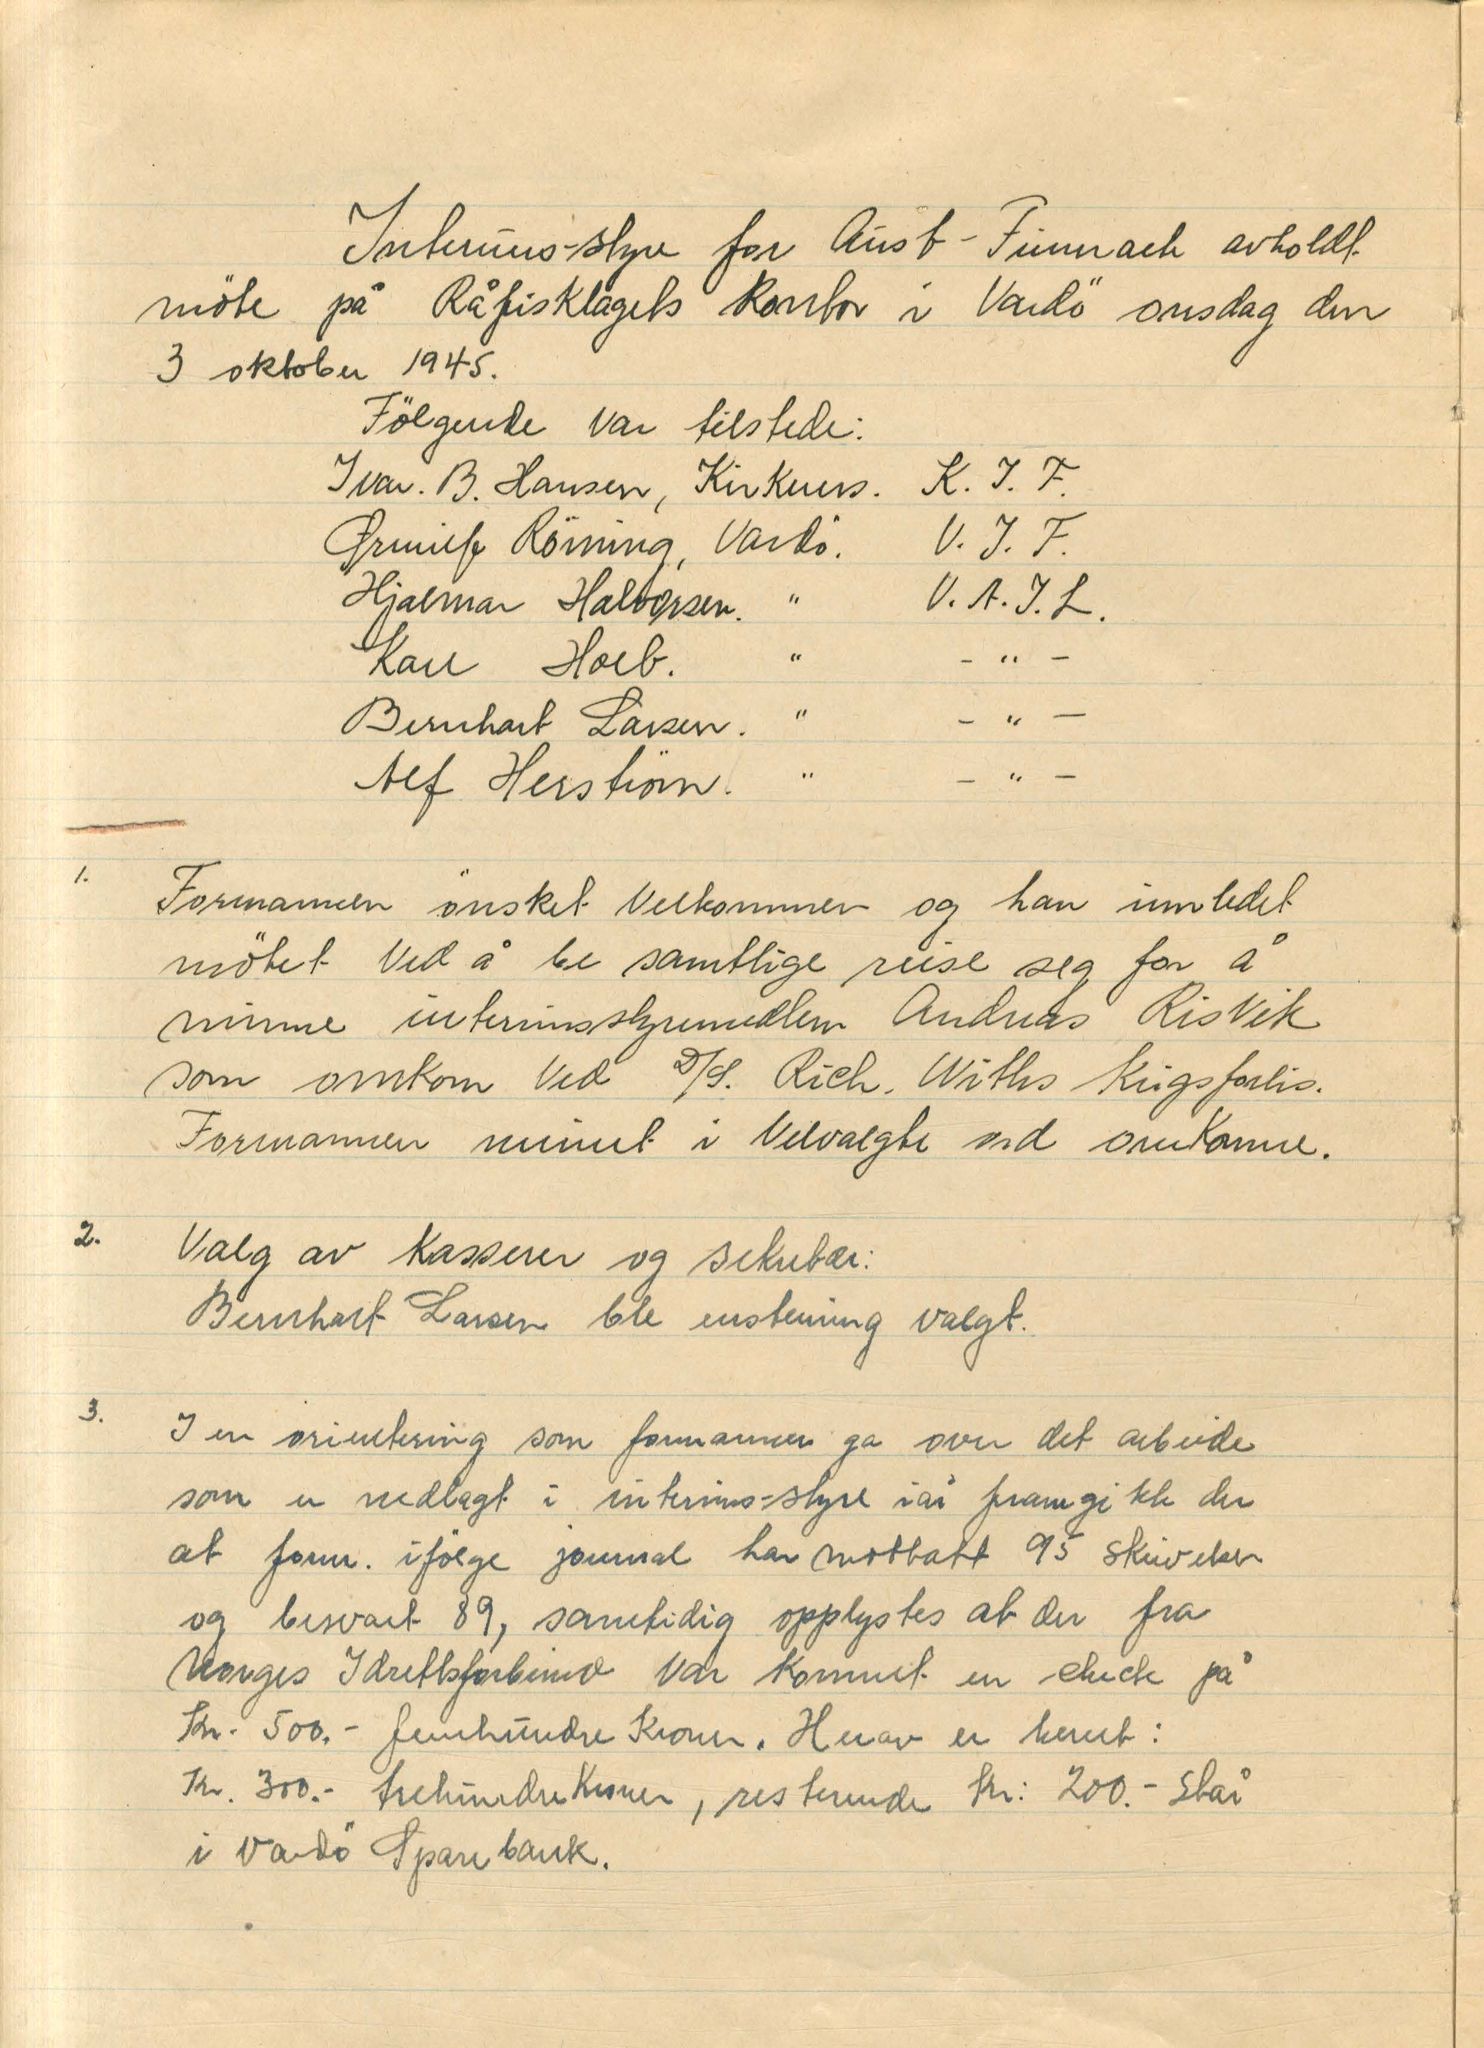 Interims-styre for Aust-Finnmark avholdt
möte på Råfisklagets kontor i Vardö onsdag den
3 oktober 1945.
Fölgende var tilstede:
Ivar. B. Hansen, Kirkenes. K. I. F.
Ørnulf Röning, Vardö. V. I. F.
Hjalmar Halvorsen. " V. A. I. L.
Karl Holt. " - " -
Bernhart Larsen. " - " -
Alf Herström. " - " -
1. Formannen önsket velkommen og han innledet
mötet ved å be samtlige reise seg for å
minne interimsstyremedlem Andreas Risvik
som omkom ved D/S. Rich. Withs krigsforlis.
Formannen minnet i velvalgte ord omkomne.
2. Valg av kasserer og sekretær:
Bernhart Larsen ble enstemmig valgt.
3. I en orientering som formannen ga over det arbeide
som er nedlagt i interims-styre iår framgikk der
at form. ifölge journal har mottatt 95 skrivelser
og besvart 89, samtidig opplystes at der fra
Norges Idrettsforbund var kommet en check på
Kr. 500.- femhundre kroner. Herav er hevet:
Kr. 300.- trehundre kroner, resterende Kr: 200.- står
i Vardö Sparebank.